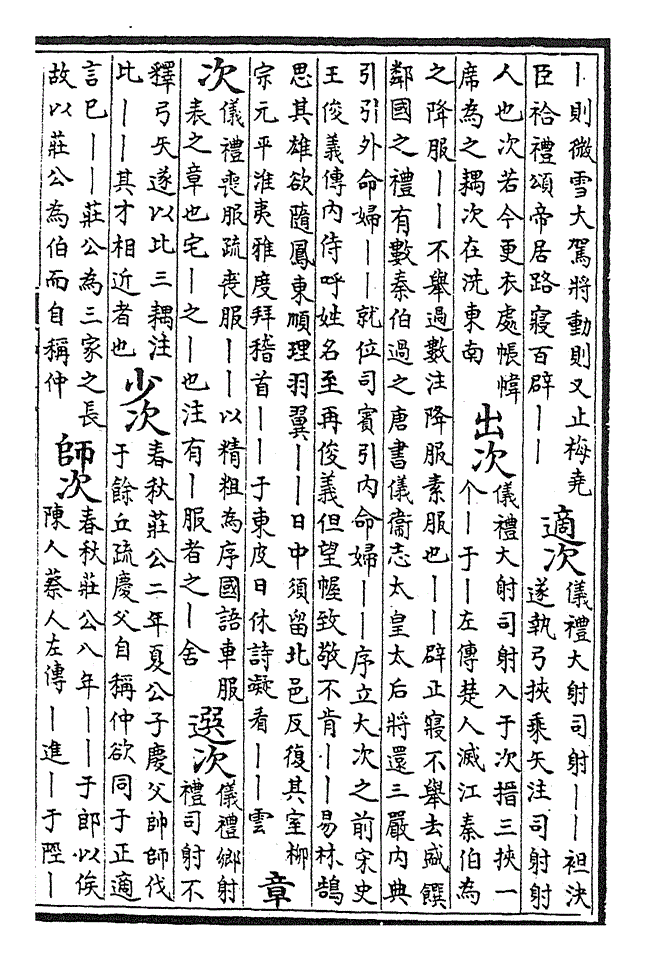 丨則微雪大駕將動則又止梅堯
臣祫禮頌帝居路寢百辟丨丨
適次
儀禮大射司射丨丨袒決
遂執弓挾乘矢注司射射
人也次若今更衣處帳幃
席為之耦次在洗東南
出次
儀禮大射司射入于次搢三挾一
个丨于丨左傳楚人滅江秦伯為
之降服丨丨不舉過數注降服素服也丨丨辟正寢不舉去盛饌
鄰國之禮有數秦伯過之唐書儀衞志太皇太后將還三嚴內典
引引外命婦丨丨就位司賓引內命婦丨丨序立大次之前宋史
王俊義傳內侍呼姓名至再俊義但望幄致敬不肯丨丨易林鵠
思其雄欲隨鳳東順理羽翼丨丨日中須留北邑反復其室柳
宗元平淮夷雅度拜稽首丨丨于東皮日休詩凝看丨丨雲
章
次
儀禮喪服疏喪服丨丨以精粗為序國語車服
表之章也宅丨之丨也注有丨服者之丨舍
選次
儀禮鄉射
禮司射不
釋弓矢遂以比三耦注
比丨丨其才相近者也
少次
春秋莊公二年夏公子慶父帥師伐
于餘丘疏慶父自稱仲欲同于正適
言已丨丨莊公為三家之長
故以莊公為伯而自稱仲
師次
春秋莊公八年丨丨于郎以俟
陳人蔡人左傳丨進丨于陘丨